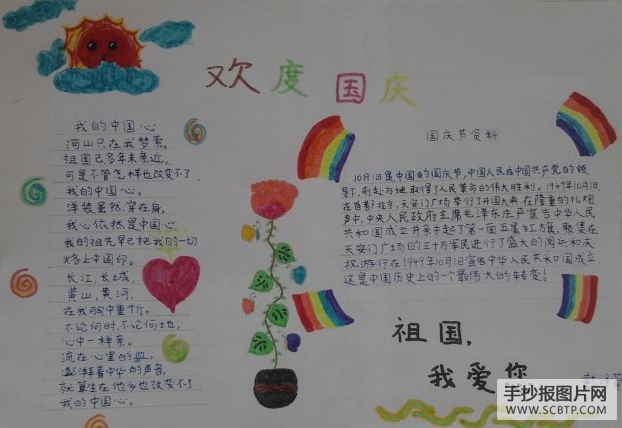 欢度国庆
我的中国心
河山只在我梦萦,
祖国已多年未亲近,
可是不管怎样也改变不了
我的中国心。
洋装虽然穿在身,
我心依然是中国心
我的祖先早已把我的一切
烙上中国印。
长江,长城,
黄山,黄河,
在我胸中重千斤。
不论何时,不论何地,
心中一样亲。
流在心里的血,
澎湃着中华的声音,
就算生在他乡也改变不了
我的中国心。
国庆节资料
10月1日是中国的国庆节,中国人民在中国共产党的领
导下,前赴后继取得了人民革命的伟大胜利。1949年10月1日,
在首都北京,天安门广场举行了开国大典,在隆重的礼炮
声中,中央人民政府主席毛泽东庄严宣告中华人民
共和国成立并亲手起了第一面五星红旗,聚集在
天安门广场的三十万军民进行了盛大的阅兵和庆
祝游行在1949年10月1日宣告中华人民共和国成立
这是中国历史上的一个最伟大的转变!
祖国,
我爱您
手抄报图片网
WWW.SCBTP.COM